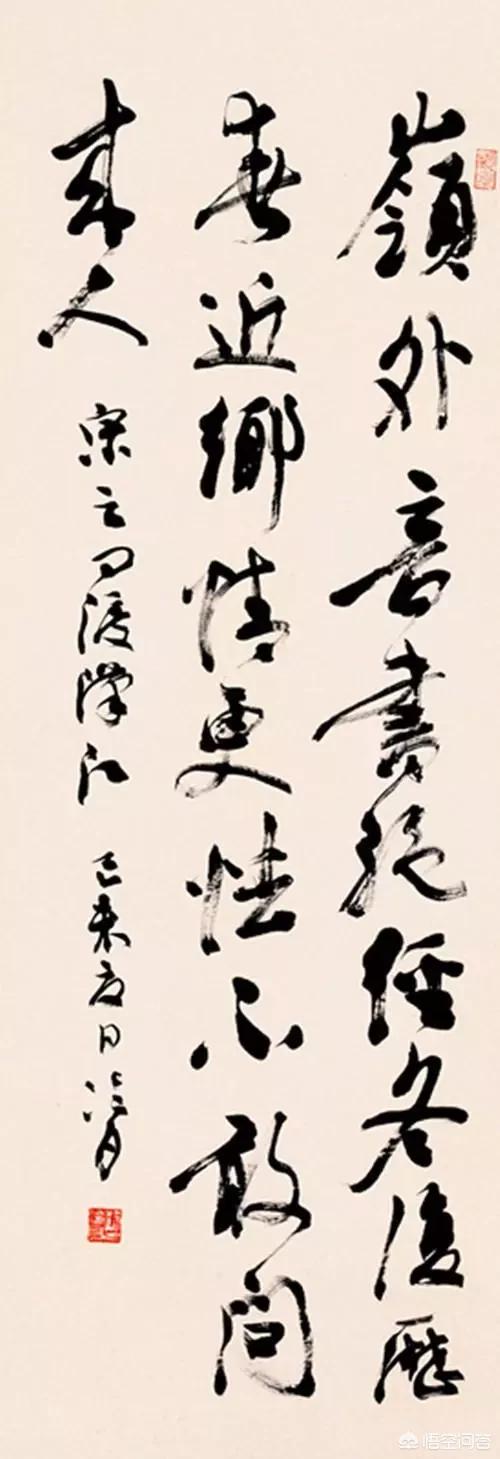 嶺外音書絶經冬復歷
春近鄉情更怯不敢問
來人
宋之问渡漢江 己未夏日
悟空问答